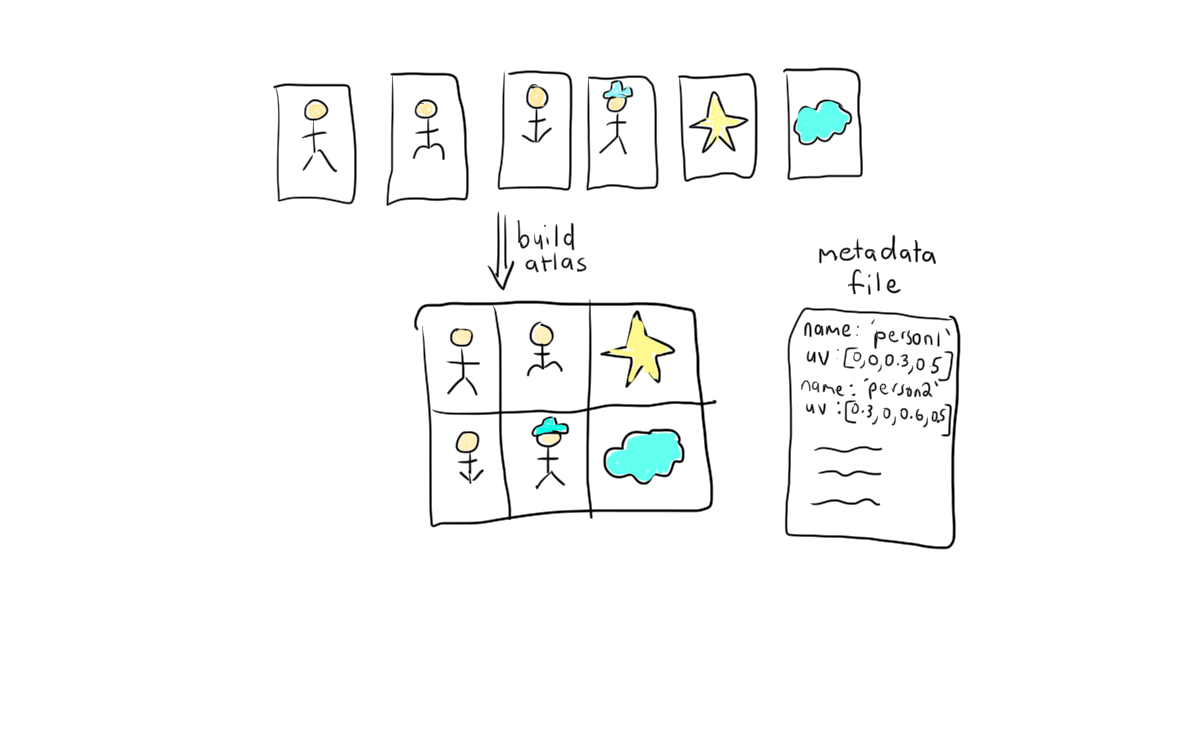 build
atlas
metadata
file
name: 'person1'
uv:[0,0,0.3,0.5]
name: 'person2'
uv:[0.3,0,0.6,0.5]